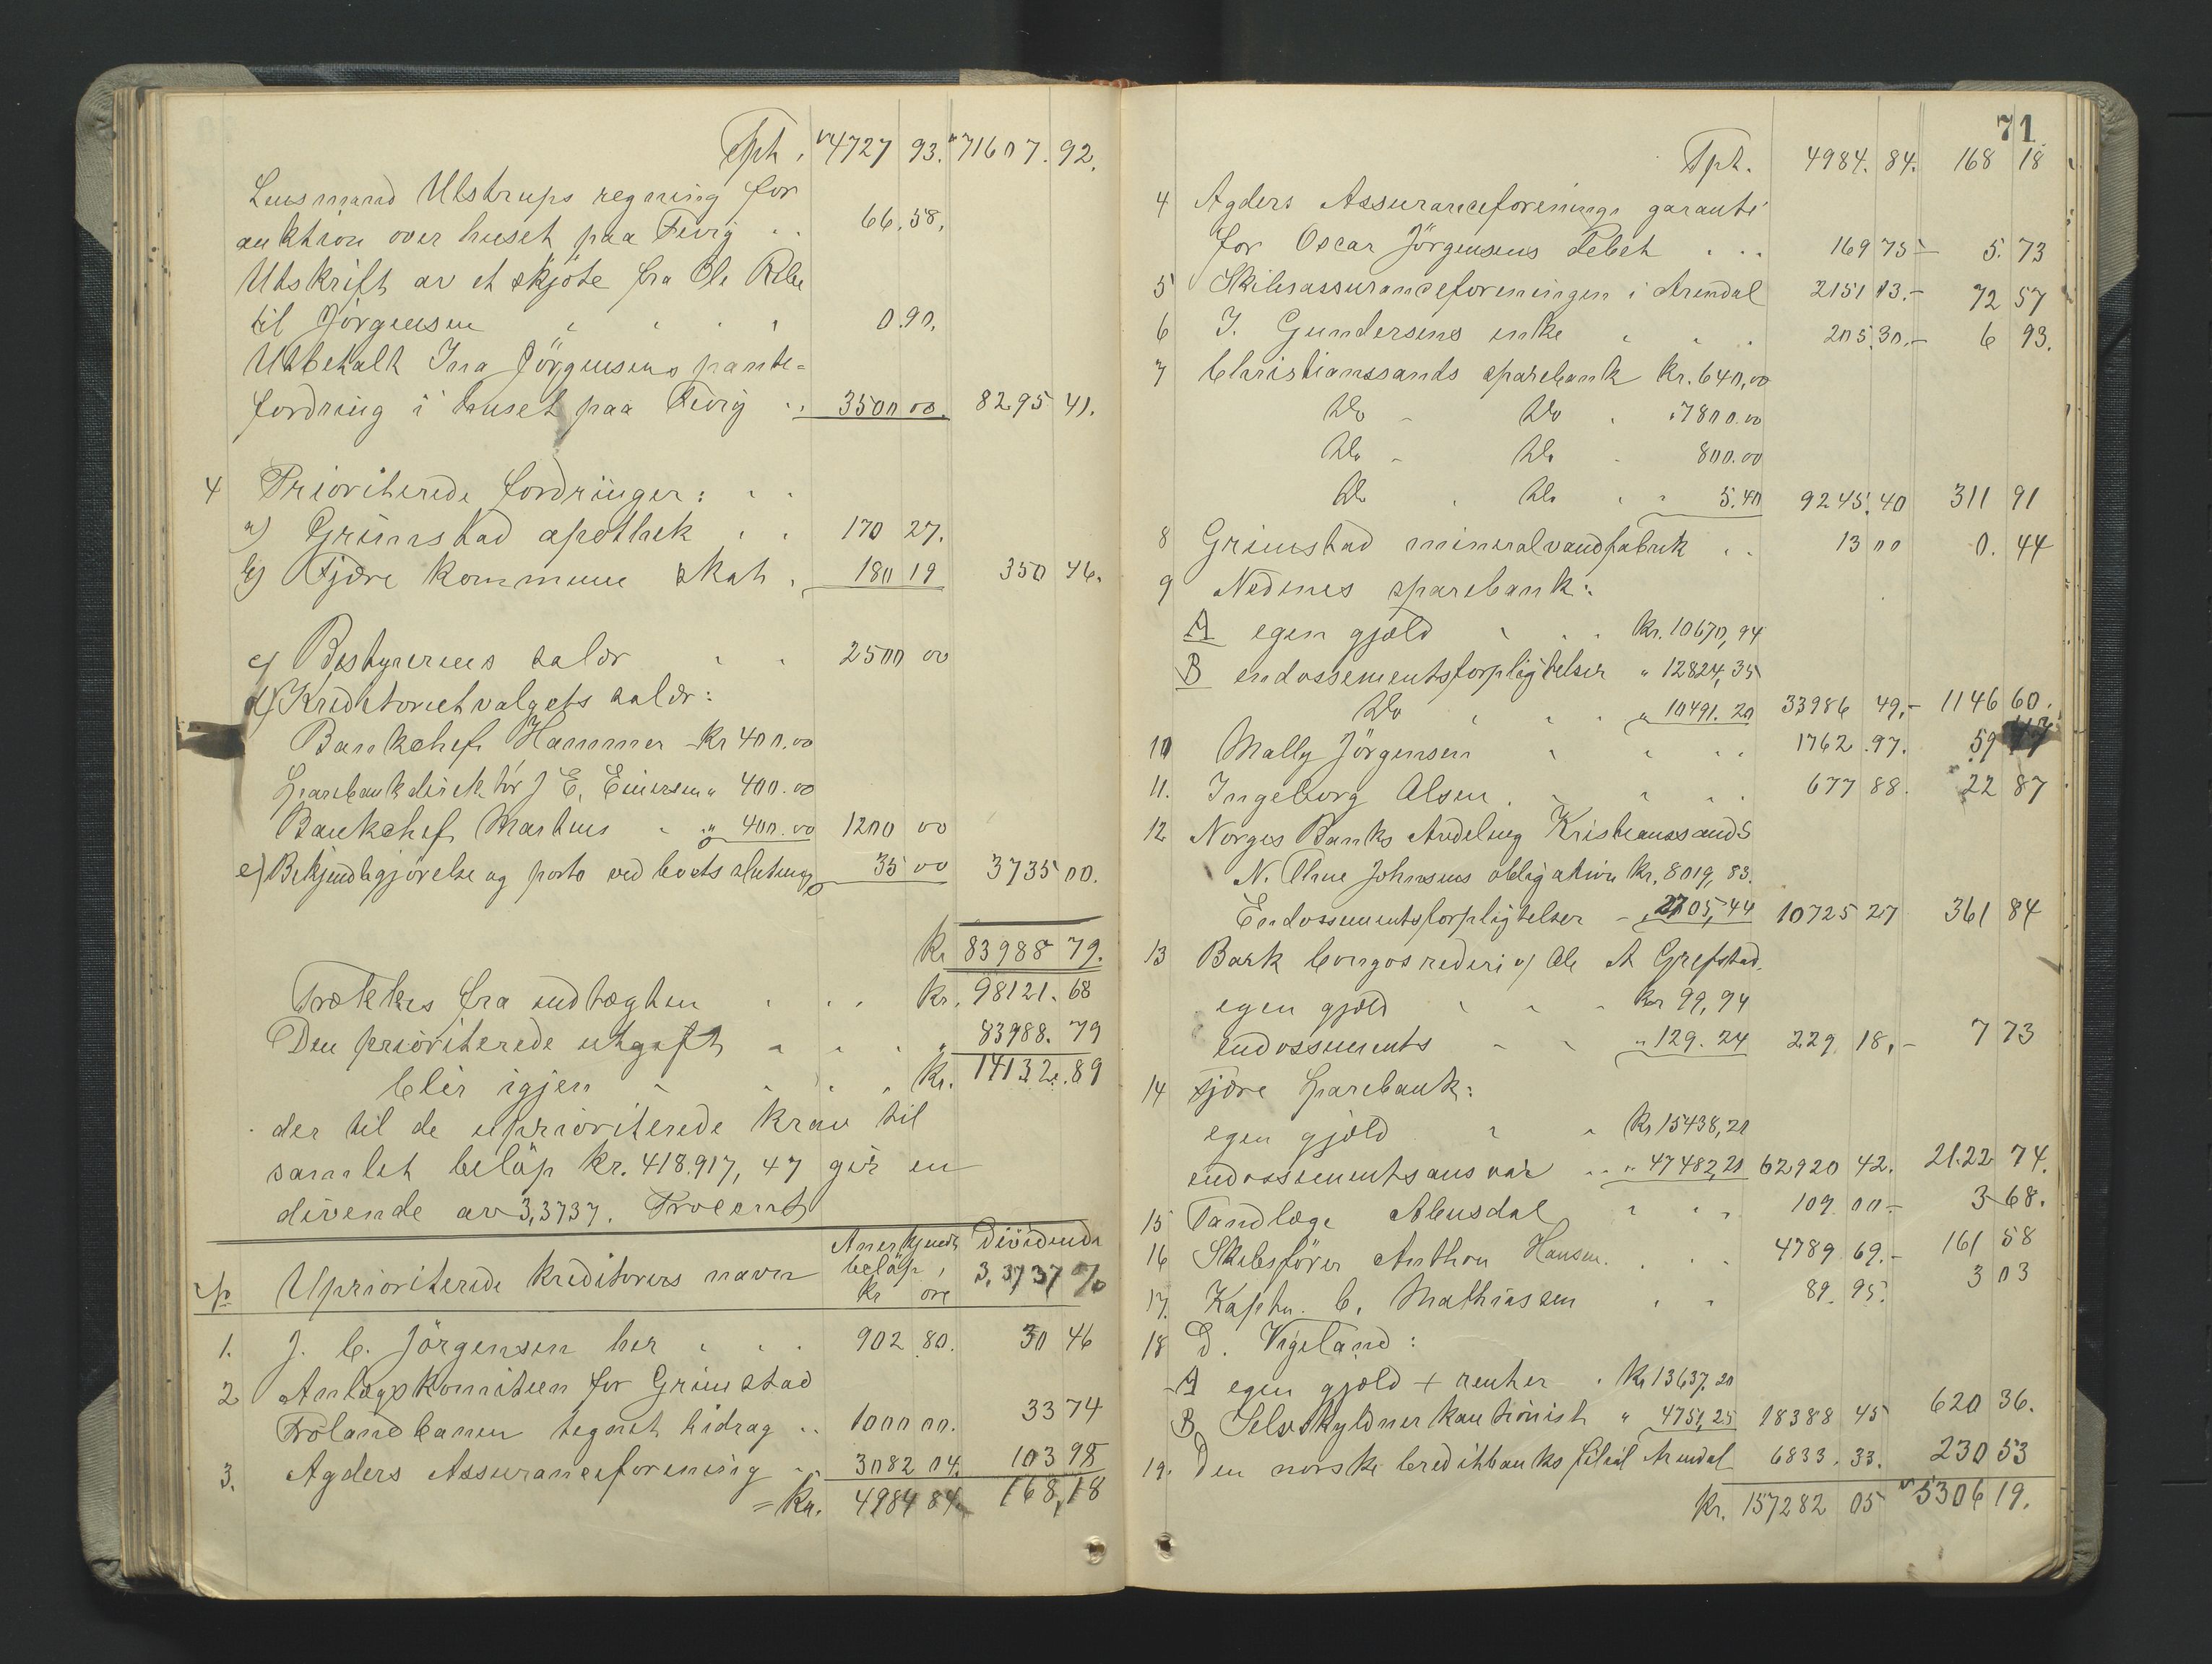 Tpt. "4727 93. "71607.92.
Lensmand Utstrups regning for
auktion over huset paa Fevig .. 66.58.
Utskrift av et skjöte fra Ole Ribe
til Jörgensen 0.90.
Utbetalt Ina Jörgensens pante=
fordring i huset paa Fevig .. 3500 00. 8295 41.
4 Prioriterede fordringer:
a) Grimstad apothek 170 27.
b) Fjære kommune skat. 180 19 350 46.
c) Bestyrerens salær 2500 00
d) Kreditorutvalgets salær:
Bankchef Hammer Kr 400.00
Sparebankdirektör J E. Einersen " 400.00
Bankchef Martens " 400.00 1200 00
e) Bekjendtgjörelse og porto ved boets slutning 35 00 3735 00.
Kr 83988 79.
Trækkes fra indtægten Kr. 98121.68
Den prioriterede utgift " 83988.79
blir igjen Kr. 14132.89
der til de uprioriterede krav til
samlet belöp kr. 418.917,47 gir en
divende av 3,3737. Procent
No Uprioriterede kreditorers navn Anerkjendt belöp, kr öre Dividende 3.3737 %
1. J. C. Jörgensen her 902 80. 30 46
2 Anlægskomiteen for Grimstad
Frolandbanen tegnet bidrag .. 1000 00. 33 74
3. Agders Assuranceforening 3082 04. 103 98
= Kr. 4984 84. 168,18
71
Tpt. 4984.84. 168 18
4 Agders Assuranceforenings garanti
for Oscar Jörgensens Debet ... 169 75 - 5.73
5 Skibsassuranceforeningen i Arendal 2151 13.- 72 57
6 J. Gundersens enke 205.30.- 6 93.
7 Christianssands sparebank Kr. 640,00
Do - Do . "7800.00
Do - Do - 800.00
Do . Do " 5.40 9245.40 311 91
8 Grimstad mineralvandfabrik .. 13 00 0.44
9 Nedenes sparebank:
A egen gjæld Kr. 10670,94
B endossementsforpligtelser " 12824,35
Do " 10491.20 33986 49.- 1146 60.
10 Mally Jörgensen 1762.97. 59 47
11. Ingeborg Olsen 677 88. 22 87
12 Norges Banks Avdeling Kristianssands
N. Thue Johnsens obligation Kr. 8019,83.
Endossementsforpligtelser - 2705,44 10725 27 361 84
13 Bark Congos rederi v/ Ole A Grefstad.
egen gjæld Kr 99,94
endossements " 129.24 229 18.- 7 73
14 Fjære Sparebank:
egen gjæld Kr 15438,21
endossementsansvar " 47482,21 62920 42. 2122 74.
15 Tandlæge Abusdal 109 00 - 3 68.
16 Skibsförer Anthon Hansen. 4789 69.- 161 58
17. Kaptn. C. Mathiassen 89.95. 3 03
18 D. Vigeland:
A egen gjæld + renter . Kr 13637.20
B. Selvskyldnerkautionist " 4751,25 18388 45 620 36.
19. Den norske Creditbanks filial Arendal 6833.33. 230 53
Kr. 157282 05 "5306 19.